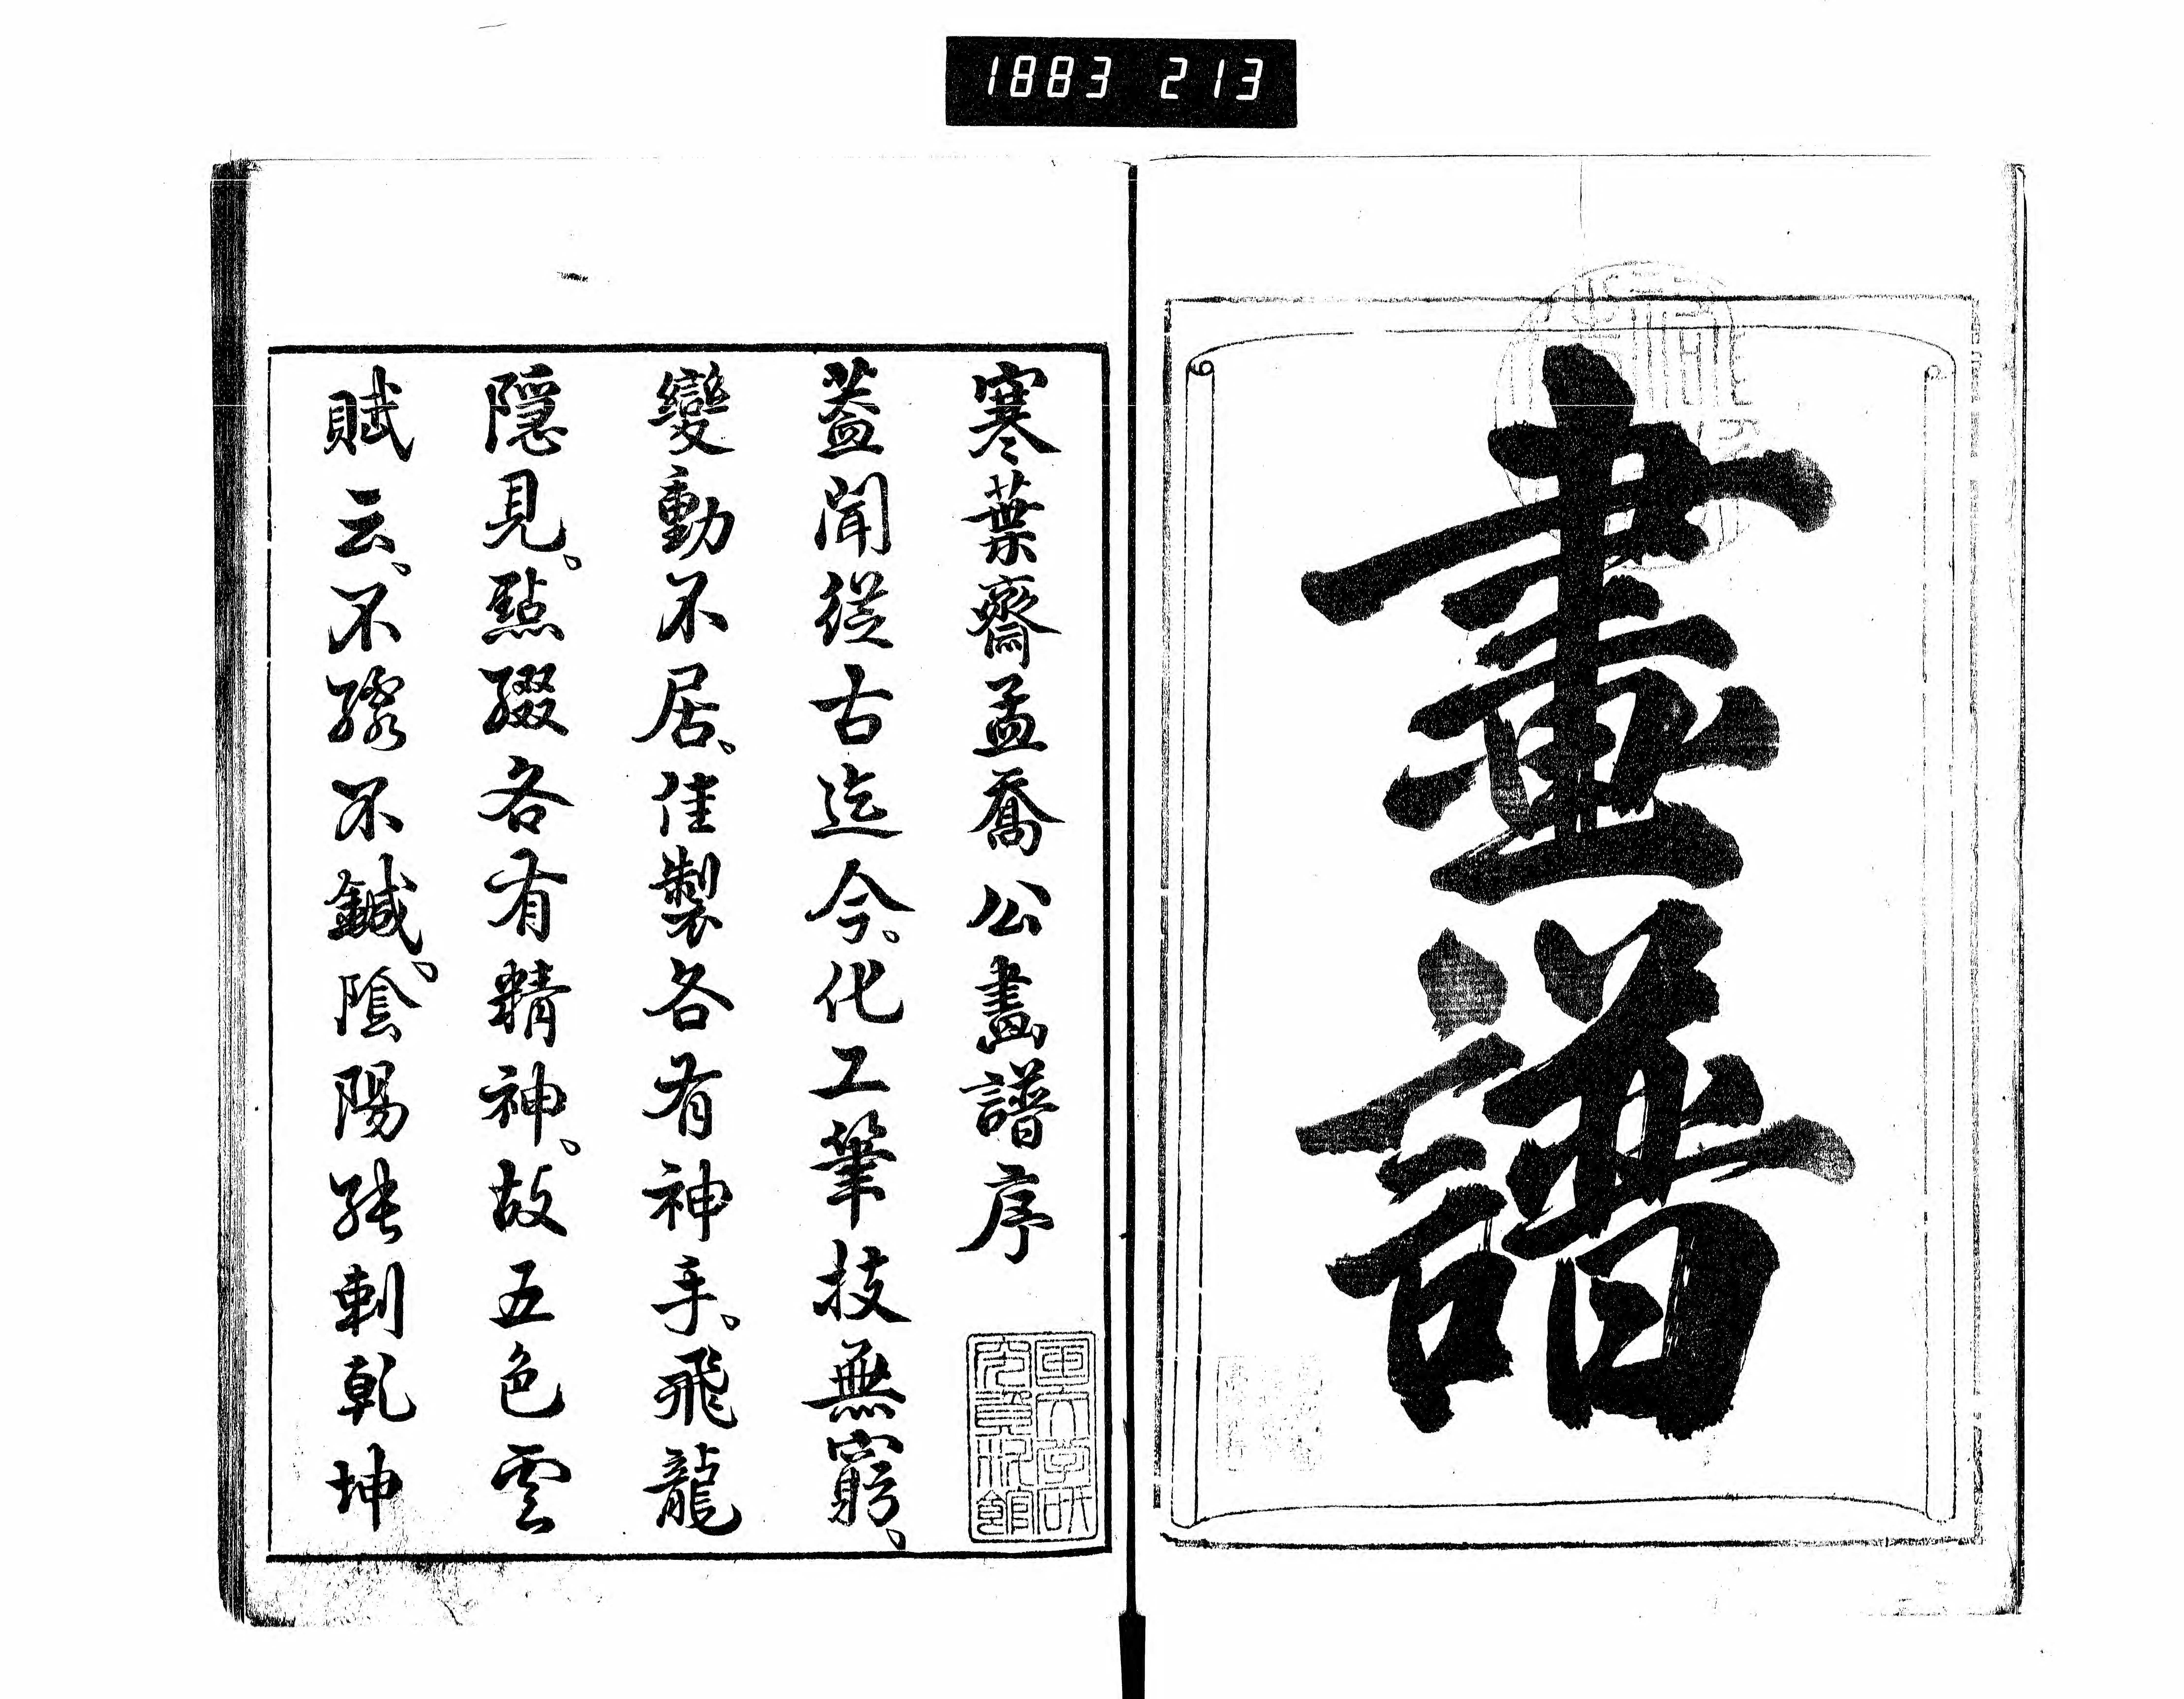 1883 213
畫譜
寒葉齋孟喬公畫譜序
蓋聞従古迄今。化工筆技無窮、
變動不居、佳製各有神手。飛龍
隱見。點綴各有精神。故五色雲
賦云。不繍不鍼。陰陽能刺乾坤